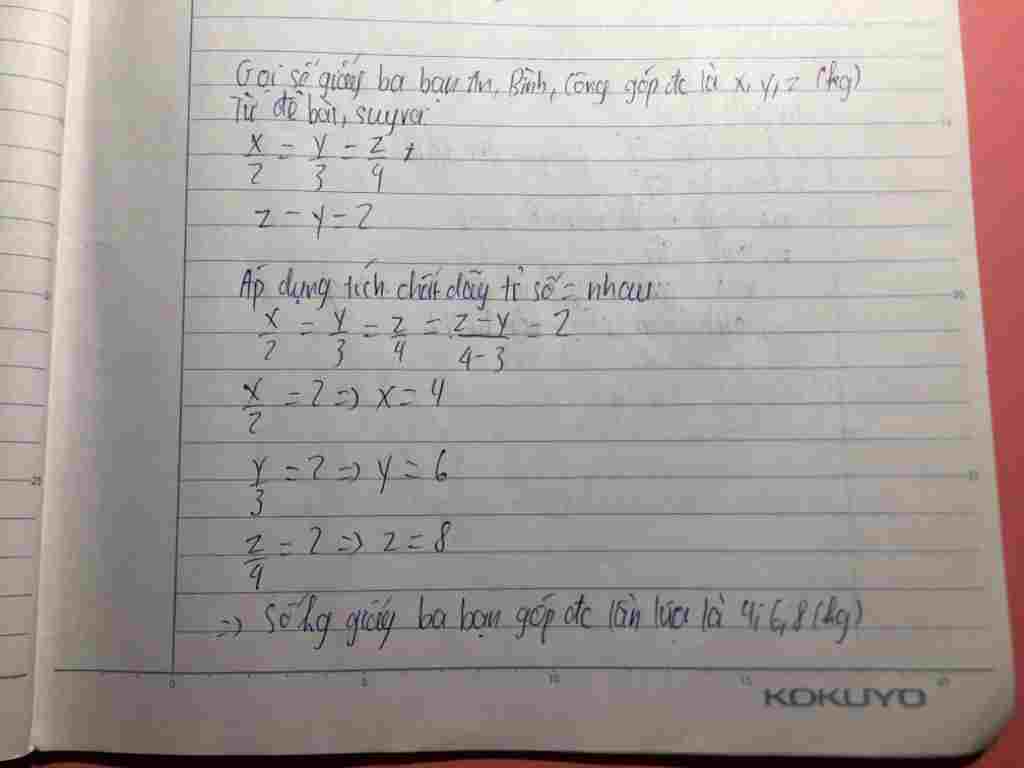 Gọi số giấy ba bạn An, Bình, Công góp đc là x, y, z (kg)
Từ đề bài, suy ra:
x/2 = y/3 = z/4 ,
z - y = 2
Áp dụng tích chất dãy tỉ số = nhau:
x/2 = y/3 = z/4 = z-y/4-3 = 2
x/2 = 2 => x = 4
y/3 = 2 => y = 6
z/4 = 2 => z = 8
=> Số kg giấy ba bạn góp đc lần lượt là 4, 6, 8 (kg)
0 5 10 15 20
KOKUYO